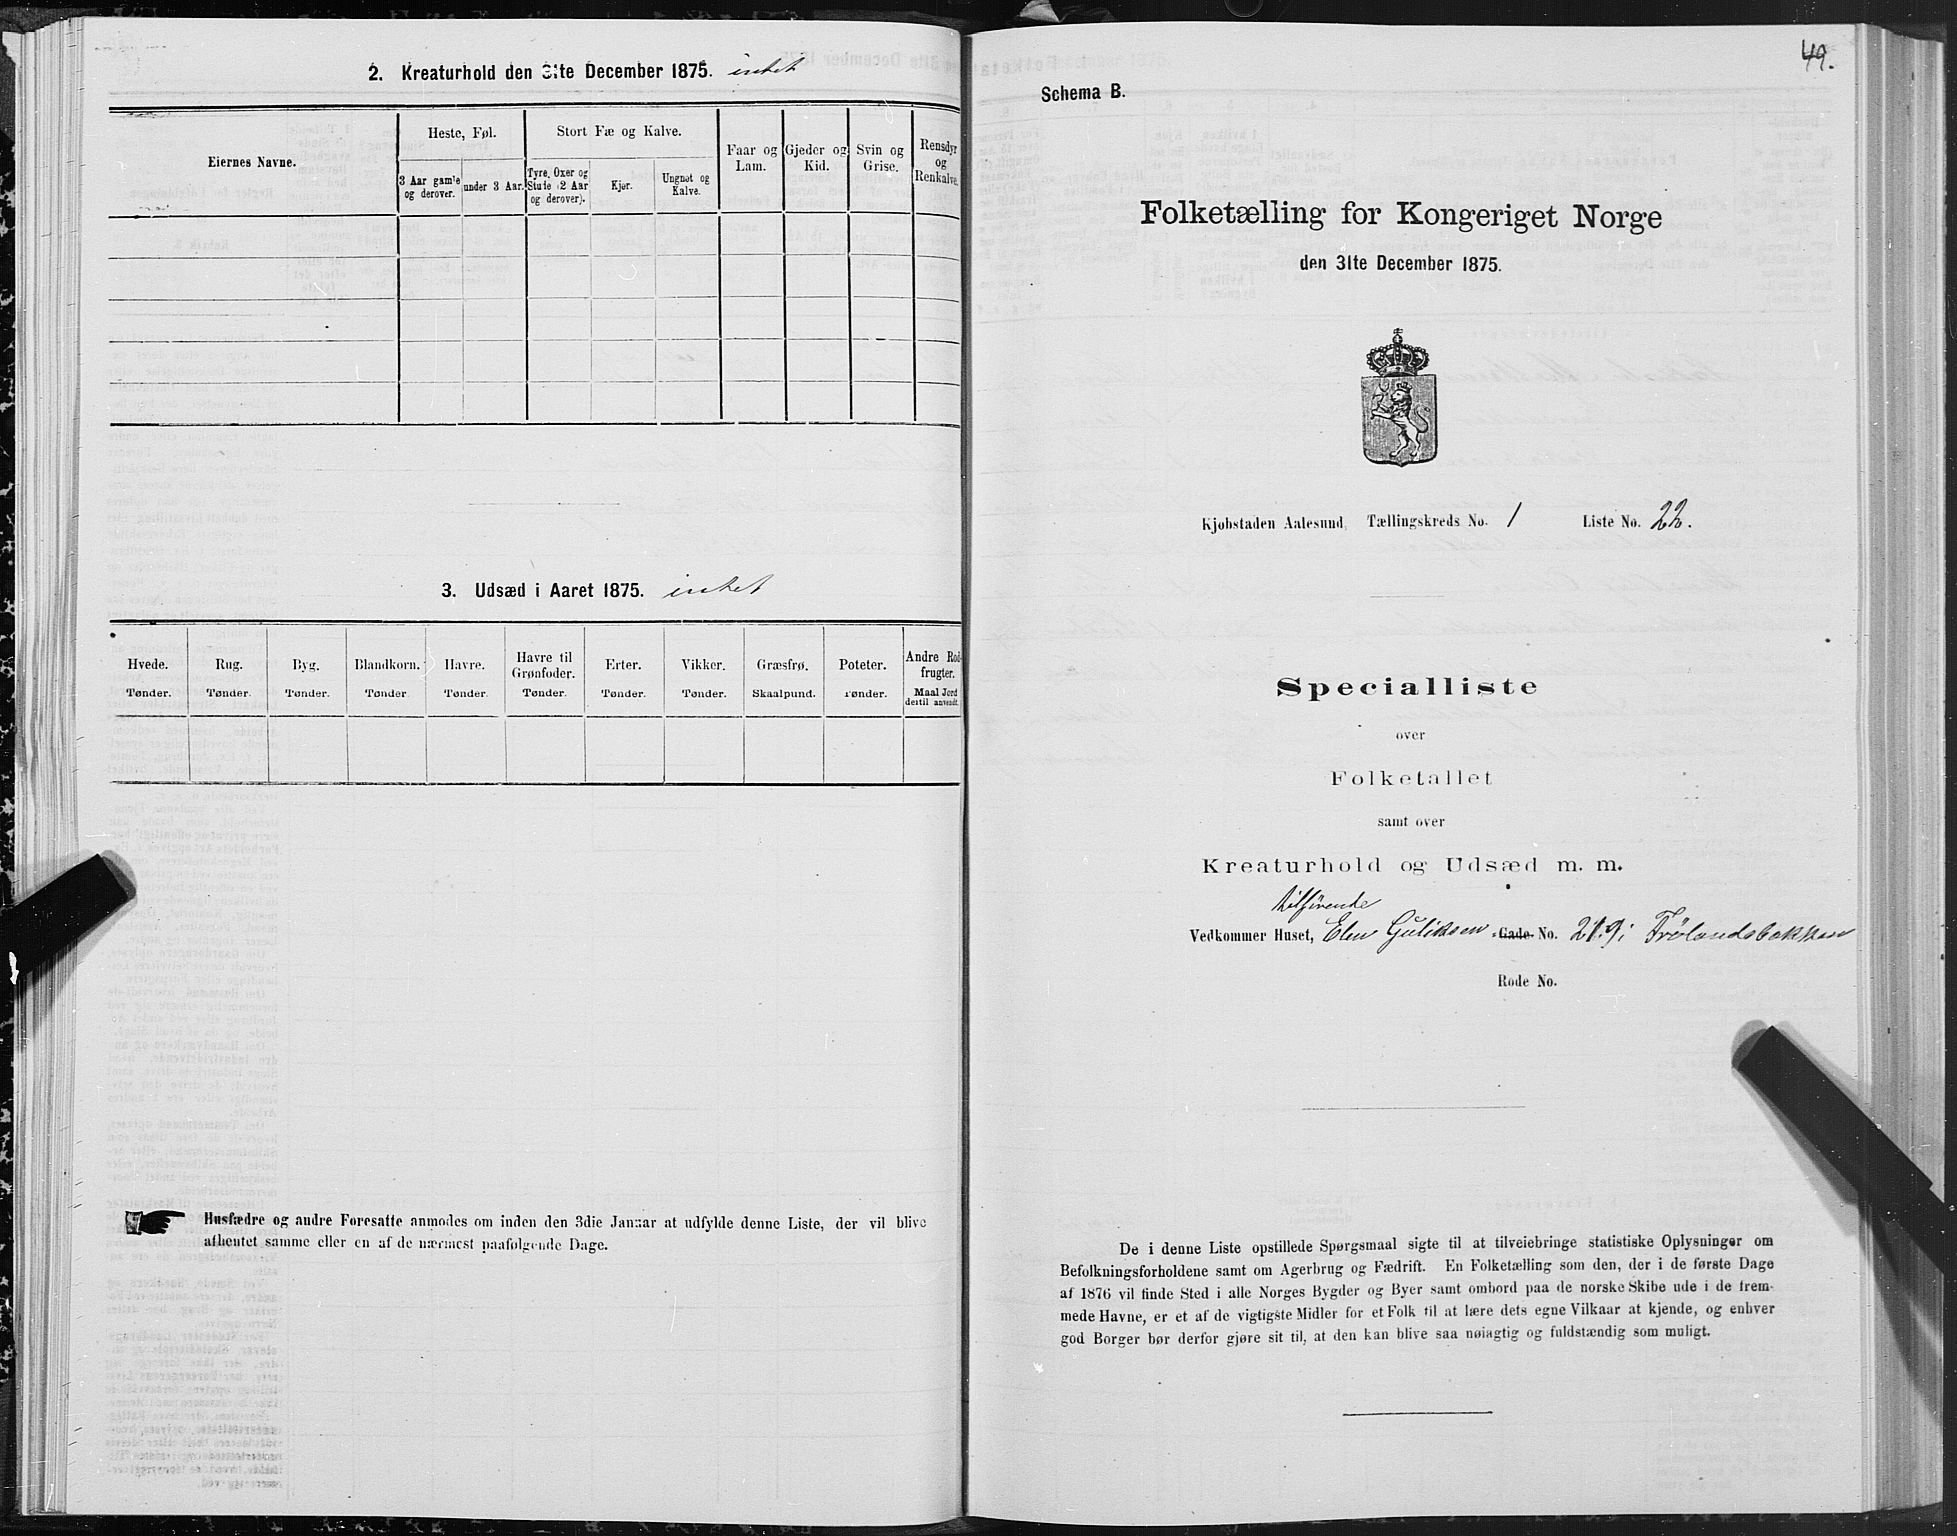 2. Kreaturhold den 31te December 1875. intet
Eiernes Navne.
Heste, Føl.
Stort Fæ og Kalve.
Faar og Lam.
Gjeder og Kid.
Svin og Grise.
Rensdyr og Renkalve.
3 Aar gamle og derover.
under 3 Aar.
Tyre, Oxer og Stude (2 Aar og derover).
Kjør.
Ungnøt og Kalve.
3. Udsæd i Aaret 1875. intet
Hvede. Rug. Byg. Blandkorn. Havre. Havre til Grønfoder. Erter. Vikker. Græsfrø. Poteter. Andre Rodfrugter.
Tønder. Tønder. Tønder. Tønder. Tønder. Tønder. Tønder. Tønder. Skaalpund. Tønder. Maal Jord dertil anvendt.
Husfædre og andre Foresatte anmodes om inden den 3die Januar at udfylde denne Liste, der vil blive
afhentet samme eller en af de nærmest paafølgende Dage.
49.
Schema B.
Folketælling for Kongeriget Norge
den 31te December 1875.
Kjøbstaden Aalesund, Tællingskreds No. 1 Liste No. 22.
Specialliste
over
Folketallet
samt over
Kreaturhold og Udsæd m. m.
tilhørende
Vedkommer Huset, Elen Guliksen Gade No. 219 i Frølandsbakken
Rode No.
De i denne Liste opstillede Spørgsmaal sigte til at tilveiebringe statistiske Oplysninger om
Befolkningsforholdene samt om Agerbrug og Fædrift. En Folketælling som den, der i de første Dage
af 1876 vil finde Sted i alle Norges Bygder og Byer samt ombord paa de norske Skibe ude i de frem-
mede Havne, er et af de vigtigste Midler for et Folk til at lære dets egne Vilkaar at kjende, og enhver
god Borger bør derfor gjøre sit til, at den kan blive saa nøiagtig og fuldstændig som muligt.